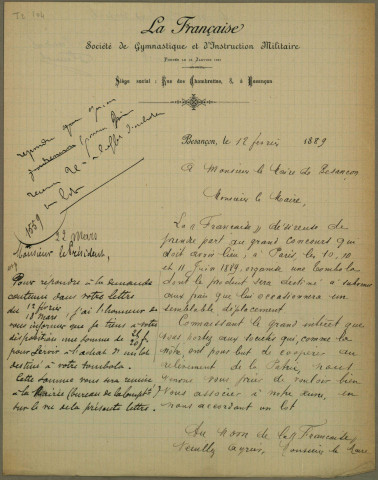 La Française
Société de Gymnastique et d'Instruction Militaire
Siège social : Rue des Chambrettes, 8, à Besançon
Besançon, le 12 février 1889
A Monsieur le Maire de Besançon
Monsieur le Maire,
La « Française » désireuse de
prendre part au grand concours qui
doit avoir lieu, à Paris les 9, 10
et 11 Juin 1889, organise une tombola
dont le produit sera destiné à subvenir
aux frais que lui occasionnera un
semblable déplacement.
Connaissant le grand intérêt que
vous portez aux sociétés qui, comme la
nôtre, ont pour but de coopérer au
relèvement de la Patrie, nous
venons vous prier de vouloir bien
vous associer à notre œuvre, en
nous accordant un lot
Au nom de la « Française »
Veuillez agréer, Monsieur le Maire
répondre que
1889
un lot
22 mars
Monsieur le Président,
Pour répondre à la demande
contenue dans votre lettre
du 12 février
18 mars, j'ai l'honneur de
vous informer que je tiens à votre
disposition une somme de 20f
pour servir à l'achat d'un lot
destiné à votre tombola.
Cette somme vous sera remise
à la Mairie (bureau de la Compté)
sur le vu de la présente lettre.